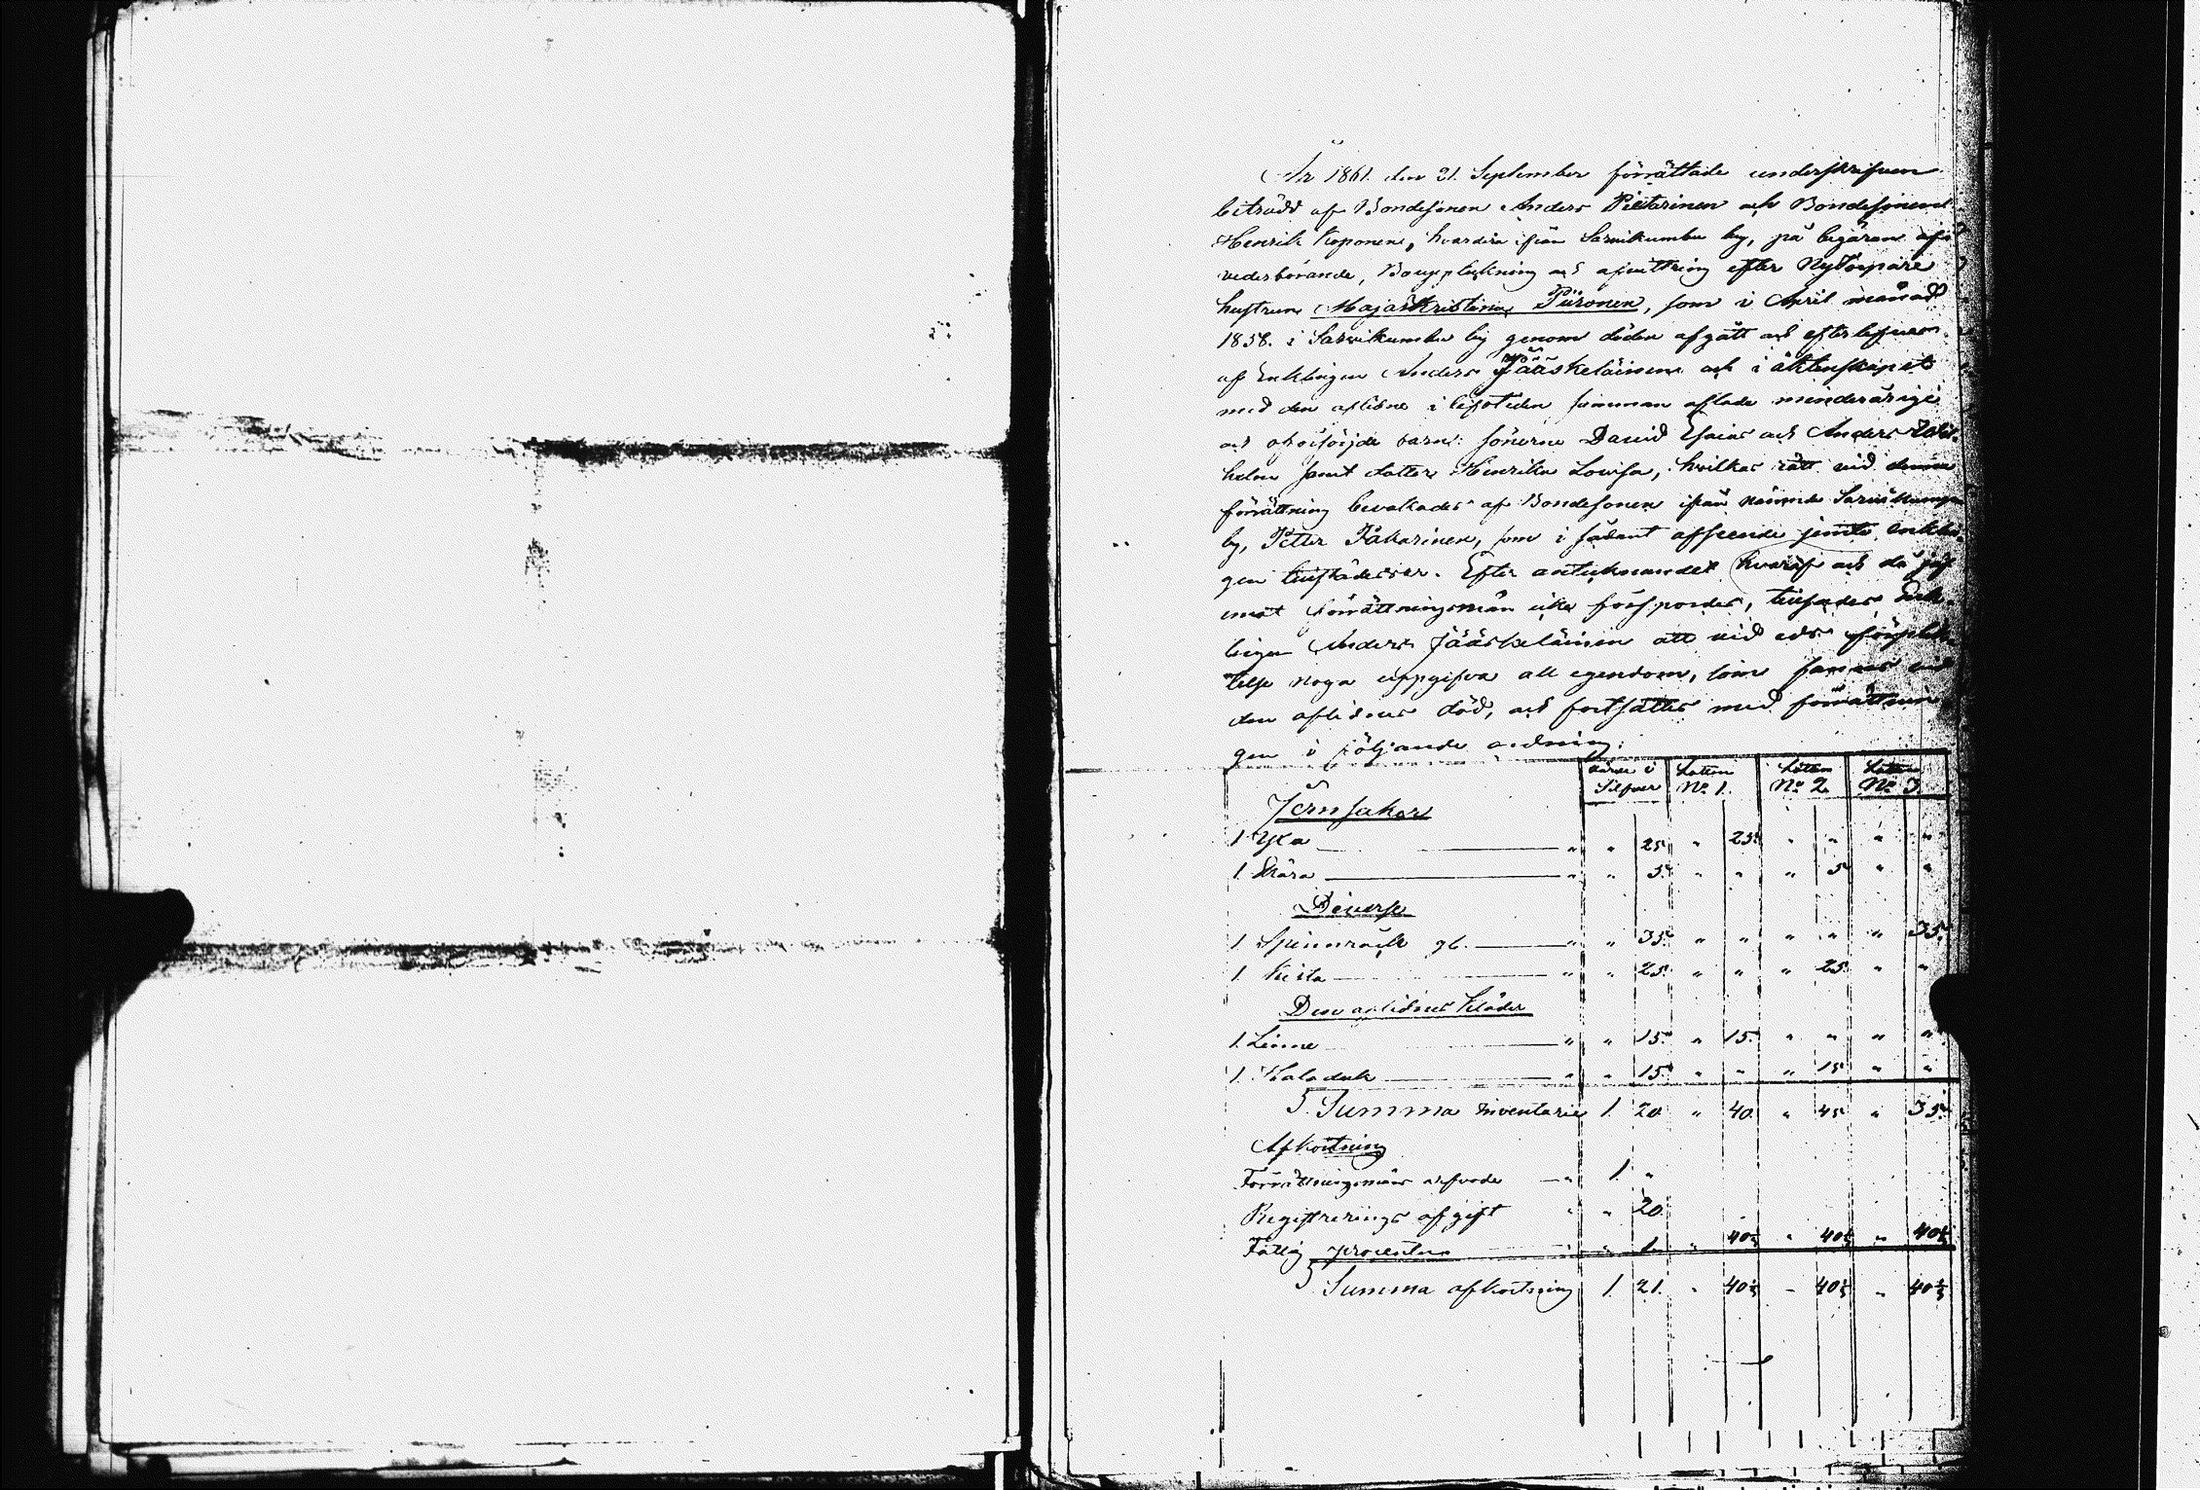 År 1861. den 21. September förrättade underskrifven
biträdd af Bondesonen Anders Pietarinen och Bondesonen
Henrik Koponen, hvardera ifrån Sarvikumbu by, på begäran af
vederbörande, Bouppteckning och afvittring efter Nybyggare
hustrun Maja Kristina Piironen, som i April månad
1858. i Sarvikumbu by genom döden afgått och efterlefves
af Enklingen Anders Jääskeläinen och i äktenskapet
med den aflidne i lifstiden samman aflade minderårige
och oförsörjde barn: sönerne David Esaias och Anders
samt dotter Henrika Lovisa, hvilkas rätt vid denna
förrättning bevakades af Bondesonen ifrån nämnde Sarvikumpu
by, Petter Pakarinen, som i sådant afseende jemte enklin-
gen tillstädes var. Efter antecknandet häraf och då jäf
emot förrättningsmän icke förspordes, tillsades Enk-
lingen Anders Jääskeläinen att vid eds förplik-
telse noga uppgifva all egendom, som fanns vid
den aflidnes död, och fortsattes med förrättnin-
gen i följande ordning:
Värde i Silfver Lotten No 1. Lotten No 2. Lotten No 3.
Jernsaker
1 Yxa " " 25. " 25. " " " "
1. Skära " " 5. " " " 5 " "
Diverse
1 Spinnråck gl. " " 35. " " " " " 35.
1 Kista " " 25. " " " 25. " "
Den aflidnes kläder
1. Linne " " 15. " 15. " " " "
1. Halsduk " " 15. " " " 15 " "
S. Summa inventarie 1. 20. " 40. " 45 " 35.
Afkortning
Förrättningsmäns arfvode " 1. "
Registrerings afgift " " 20.
Fattig procenten " " 1. " 40⅓ " 40⅓ " 40⅓
S Summa afkortning 1. 21. " 40⅓ " 40⅓ " 40⅓